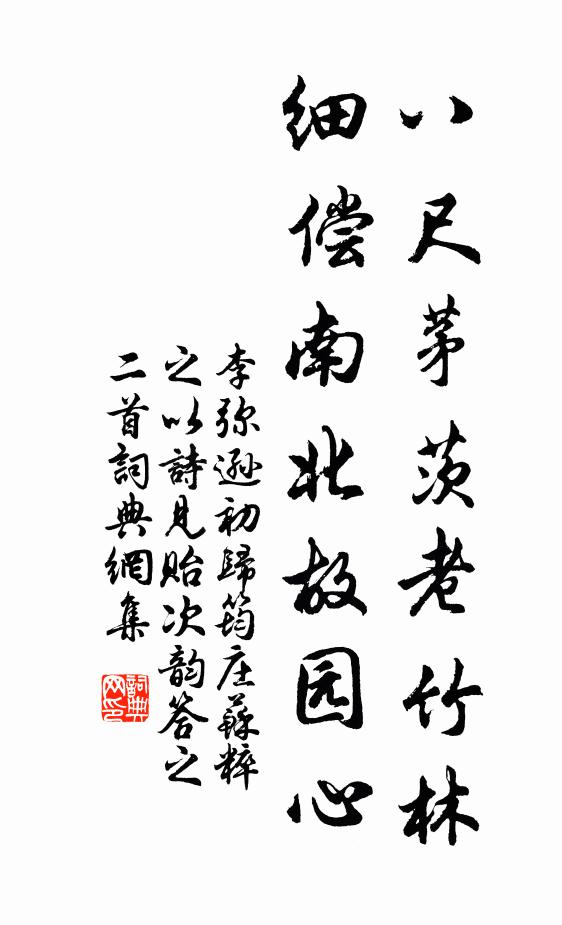 八尺茅茨老竹林
细偿南北故园心
李弥逊初歸筠庄蘇粹
之以詩見贻次韵答之
二首詞典網集
詞典网印